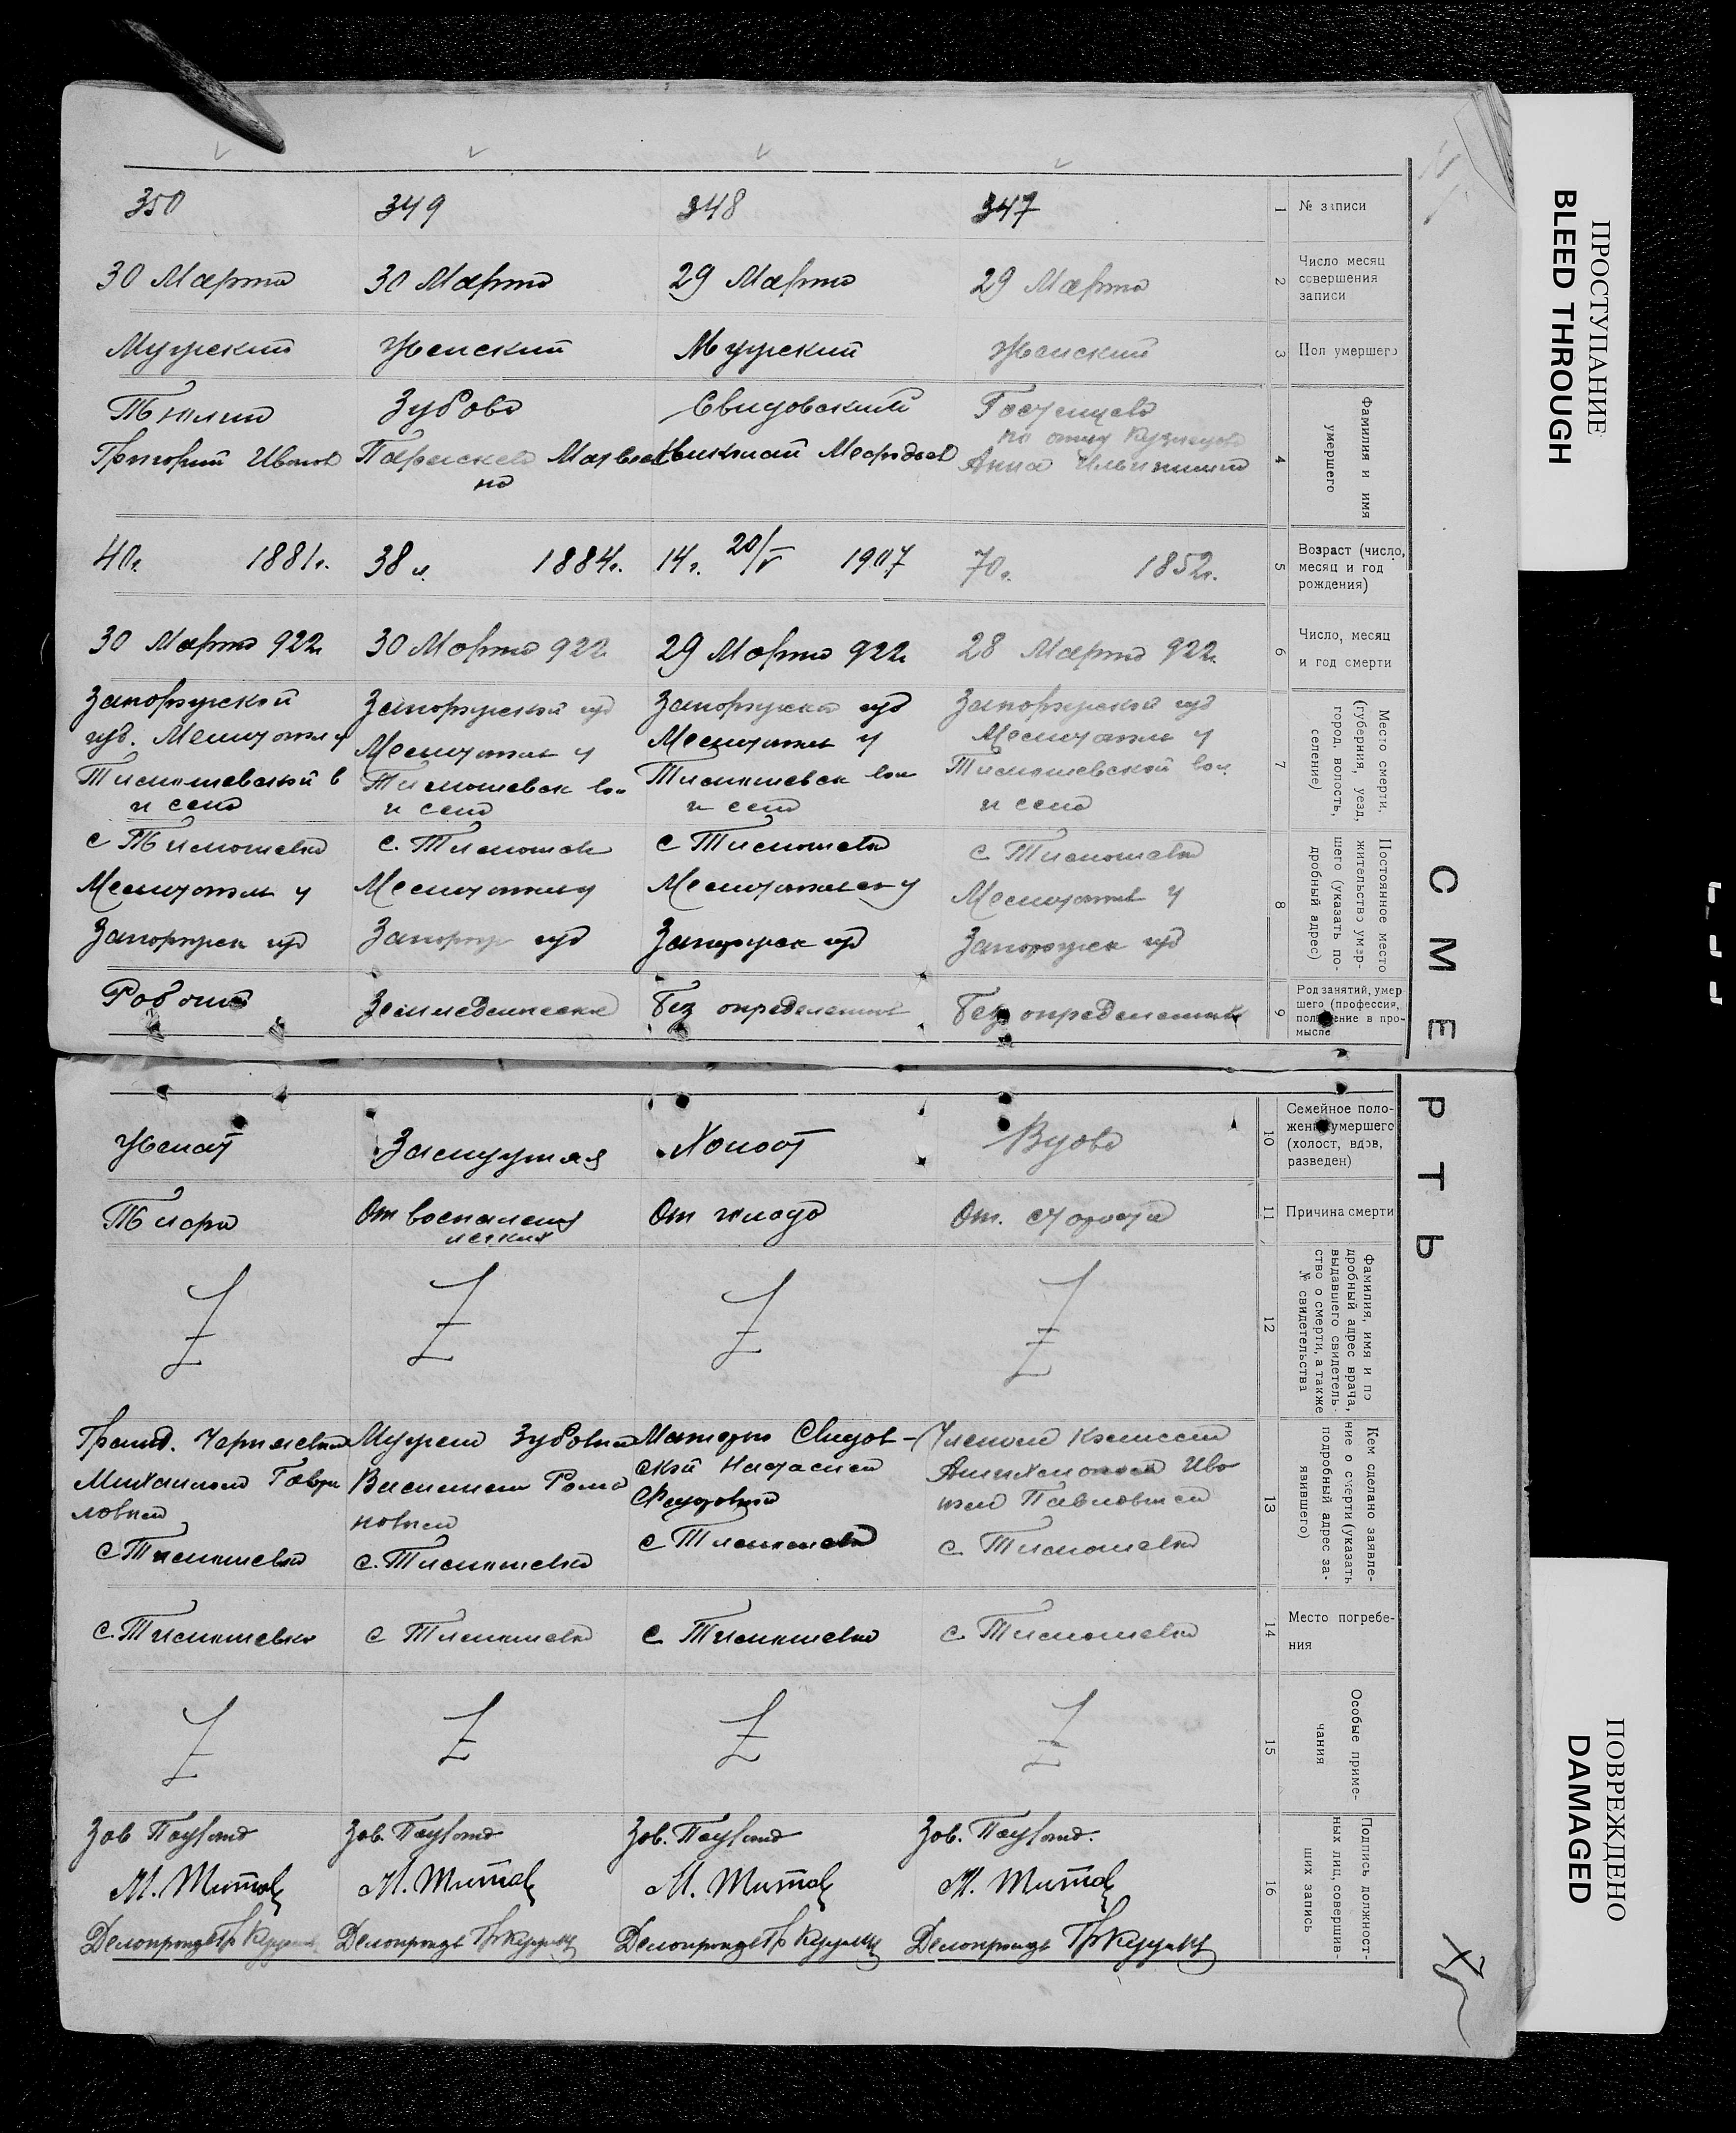 ПРОСТУПАНИЕ
BLEED THROUGH
СМЕРТЬ
№ записи
1
347
348
349
350
Число месяц
совершения
записи
2
29 Марта
29 Марта
30 Марта
30 Марта
Пол умершего
3
Женский
Мужский
Женский
Мужский
Фамилия и имя
умершего
4
по отцу Кузнецова
Анна
Свидовский
Зубова
Матвеев
на
Тюлин
Григорий Иванов
Возраст (число,
месяц и год
рождения)
5
70г. 1852г.
14г. 20/V 1907
38 л. 1884г.
40г. 1881г.
Число, месяц
и год смерти
6
28 Марта 922г.
29 Марта 922г
30 Марта 922
30 Марта 922г
Место смерти.
(губерния, уезд,
город. волость,
селение)
7
Запорожской губ
Мелитопол у
Тимошевской вол.
и села
Запорожской губ
Мелитопол у
Тимошевск вол
и села
Запорожской губ
Мелитопол у
Тимошевск вол
и села
Запорожской
губ. Мелитопол у
Тимошевской в
и села
Постоянное место
жительство умер-
шего (указать по-
дробный адрес)
8
с. Тимошевка
Мелитопол у
Запорожск губ
с Тимошевка
Мелитопольск у
Запорожск губ
с. Тимошевк
Мелитопол у
Запорож губ
с Тимошевка
Мелитопол у
Запорожск губ
Род занятий, умер
шего (профессия,
положение в про-
мысле
9
Без определенных
Без определенных
Рабочий
Семейное поло-
жение умершего
(холост, вдов,
разведен)
10
Вдова
Холост
Замужняя
Женат
Причина смерти
11
От. старости
От голода
От воспаления
легких
Фамилия, имя и по
дробный адрес врача,
выдавшего свидетель-
ство о смерти, а также
№ свидетельства
12
Z
Z
Z
Z
Кем сделано заявле-
ние о смерти (указать
подробный адрес за-
явившего)
13
Членом
Ива
ном Павловичем
с. Тимошевка
Матерью Свидов-
ской
с Тимошевка
Мужем Зубовым
Василием Рома
новым
с. Тимошевка
Гражд.
Михаилом Гаври
ловым
с Тимошевка
Место погребе-
ния
14
с. Тимошевка
с Тимошевка
с Тимошевка
с. Тимошевка
Особые приме-
чания
15
Z
Z
Z
Z
Подпись должност-
ных лиц, совершив-
ших запись
16
Зав. Подотд.
М. Титов
Делопроизв
Зав. Подотд
М. Титов
Делопроизв
Зав. Подотд
М. Титов
Делопроизв
Зав Подотд
М. Титов
Делопроизв
ПОВРЕЖДЕНО
DAMAGED